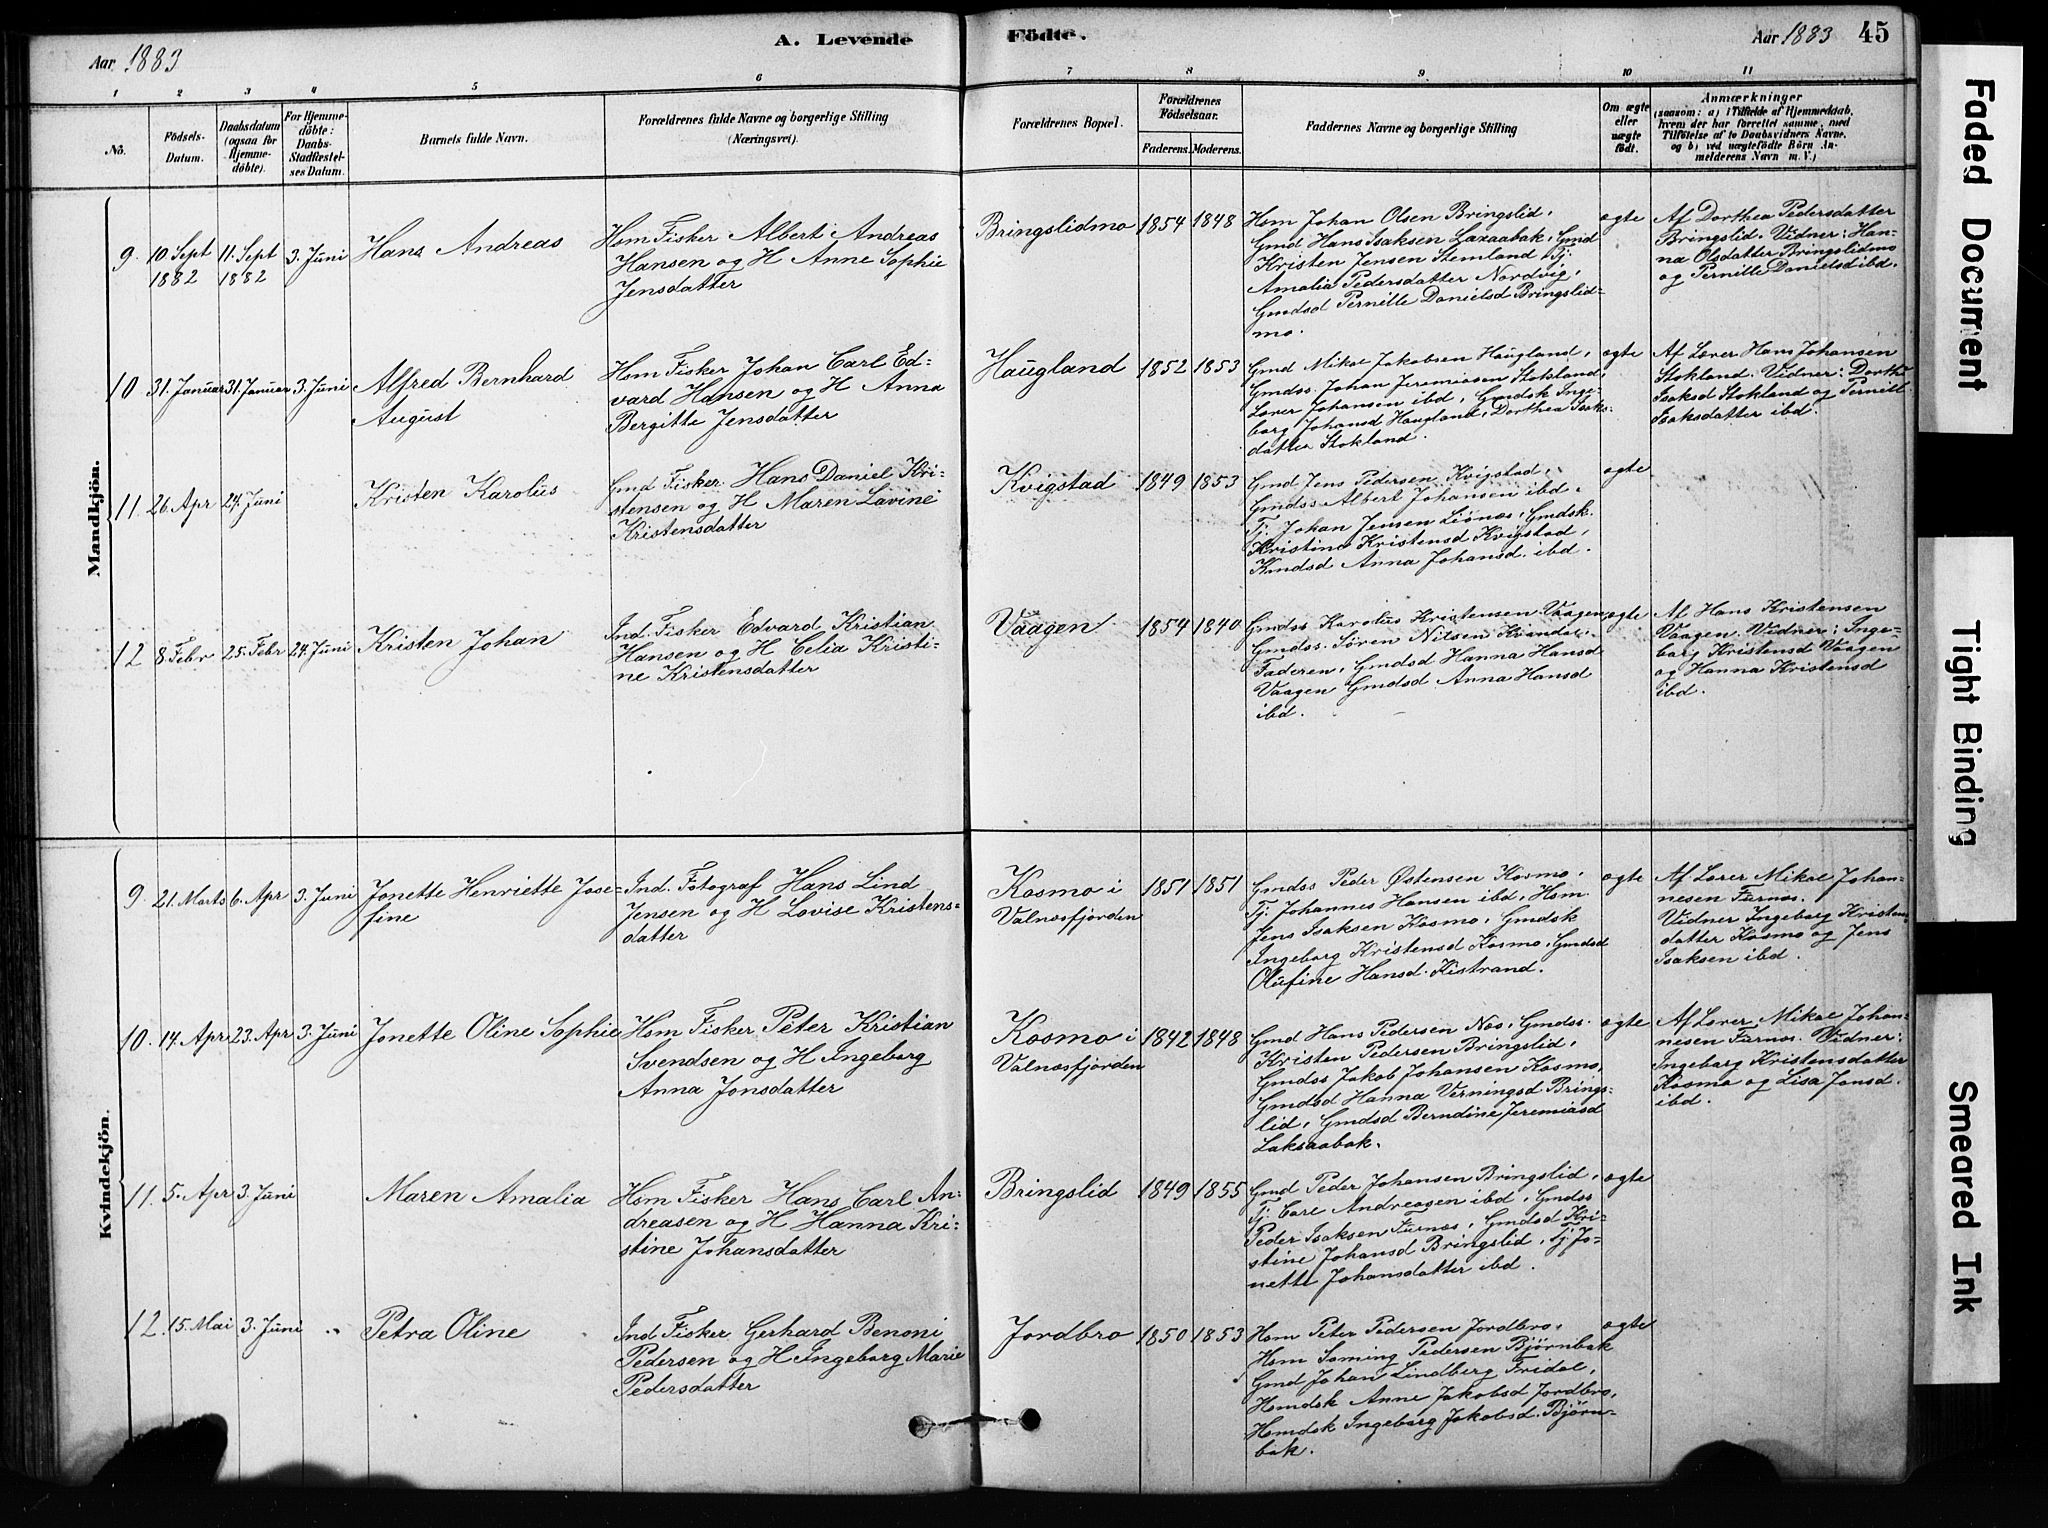 Aar 1883
A. Levende
Födte.
Aar 1883 45
1 2 3 4 5 6 7 8 9 10 11
No.
Födsels-
Datum.
Daabsdatum
(ogsaa for
Hjemme-
döbte).
For Hjemme-
döbte:
Daabs-
Stadfæstel-
ses Datum.
Barnets fulde Navn.
Forældrenes fulde Navne og borgerlige Stilling
(Næringsvei).
Forældrenes Bopæl.
Forældrenes
Födselsaar.
Faderens. Moderens.
Faddernes Navne og borgerlige Stilling
Om ægte
eller
uægte
födt.
Anmærkninger
(saasom: a) i Tilfælde af Hjemmedaab,
hvem der har forrettet samme, med
Tilföielse af to Daabsvidners Navne,
og b) ved uægtefödte Börn An-
melderens Navn m. V.)
Mandkjön.
9. 10. Sept
1882
11. Sept
1882
3. Juni
Hans Andreas
Hsm Fisker Albert Andreas
Hansen og H Anne Sophie
Jensdatter
Bringslidmo
1854 1848
Hsm Johan Olsen Bringslid,
Gmd Hans Isaksen Laxaabak, Gmd
Kristen Jensen Stemland, Tj:
Amalia Pedersdatter Nordvig,
Gmdsd Pernille Danielsd Bringslid-
mo.
ægte
Af Dorthea Pedersdatter
Bringslid. Vidner: Han-
na Olsdatter Bringslidmo
og Pernille Danielsd ibd.
10 31. Januar 31. Januar 3. Juni
Alfred Bernhard
August
Hsm Fisker Johan Carl Ed-
vard Hansen og H Anna
Bergitte Jensdatter
Haugland
1852 1853
Gmd Mikal Jakobsen Haugland,
Gmdss. Johan Jeremiasen Stokland,
Lærer Johansen ibd, Gmdsk Inge-
borg Johansd Haugland, Dorthea Isaks-
datter Stokland.
ægte
Af Lærer Hans Johansen
Stokland. Vidner: Dorth
Isaksd Stokland og Pernill
Isaksdatter ibd.
11. 26. Apr 24. Juni
Kristen Karolus
Gmd Fisker Hans Daniel Kri-
stensen og H Maren Lavine
Kristensdatter
Kvigstad
1849 1853
Gmd Jens Pedersen Kvigstad,
Gmdss Albert Johansen ibd,
Tj. Johan Jensen Lisnæs, Gmdsk.
Kristina Kristensd Kvigstad,
Kmdsd Anna Johansd. ibd.
ægte
12 8 Febr 25. Febr 24. Juni
Kristen Johan
Ind. Fisker Edvard Kristian
Hansen og H Celia Kristi-
ne Kristensdatter
Vaagen
1854 1840
Gmdss Karolius Kristensen Vaagen
Gmdss. Sören Nilsen
Faderen, Gmdsd Hanna Hansd
Vaagen Gmdsd Anna Hansd
ibd.
ægte
Af Hans Kristensen
Vaagen. Vidner: Inge-
borg Kristensd Vaagen
og Hanna Kristensd
ibd.
Kvindekjön.
9. 21. Marts 6. Apr 3. Juni
Jonette Henriette Jose-
fine
Ind. Fotograf Hans Lind
Jensen og H Lovise Kristens-
datter
Kosmo i
Valnæsfjorden
1851 1851
Gmdss Peder Østensen Kosmo,
Tj. Johannes Hansen ibd, Hsm
Jens Isaksen Kosmo, Gmdsk
Ingeborg Kristensd Kosmo, Gmdsd
Olufine Hansd. Kistrand.
ægte
Af Lærer Mikal Johan-
nesen Furnæs.
Vidner Ingeborg Kristens-
datter Kosmo og Jens
Isaksen ibd.
10. 14. Apr 23. Apr 3. Juni
Jonette Oline Sophie
Hsm Fisker Peter Kristian
Svendsen og H Ingeborg
Anna Jonsdatter
Kosmo i
Valnæsfjorden
1842 1848
Gmd Hans Pedersen Næs, Gmdss.
Kristen Pedersen Bringslid,
Gmdss Jakob Johansen Kosmo,
Gmdsd Hanna Verningsd Brings-
lid, Gmdsd Berndine Jeremiasd
Laksaabak.
ægte
Af Lærer Mikal Johan-
nesen Furnæs. Vidner:
Ingeborg Kristensdatter
Kosmo og Lisa Jonsd.
ibd.
11. 5. Apr 3. Juni
Maren Amalia
Hsm Fisker Hans Carl An-
dreasen og H Hanna Kri-
stine Johansdatter
Bringslid
1849 1855
Gmd Peder Johansen Bringslid,
Tj: Carl Andreasen ibd, Gmdss
Peder Isaksen Furnæs, Gmdsd Kri-
stine Johansd Bringslid, Tj Jo-
nette Johansdatter ibd.
ægte
12. 15. Mai 3. Juni "
Petra Oline
Ind Fisker Gerhard Benoni
Pedersen og H Ingeborg Marie
Pedersdatter
Jordbro
1850 1853
Hsm Peter Pedersen Jordbro,
Hsm Soming Pedersen Bjørnbak
Gmd Johan Lindberg Fridal,
Hsmdsk Anne Jakobsd Jordbro,
Hsmdsk Ingeborg Jakobsd. Bjørn-
bak.
ægte
Faded Document
Tight Binding
Smeared Ink